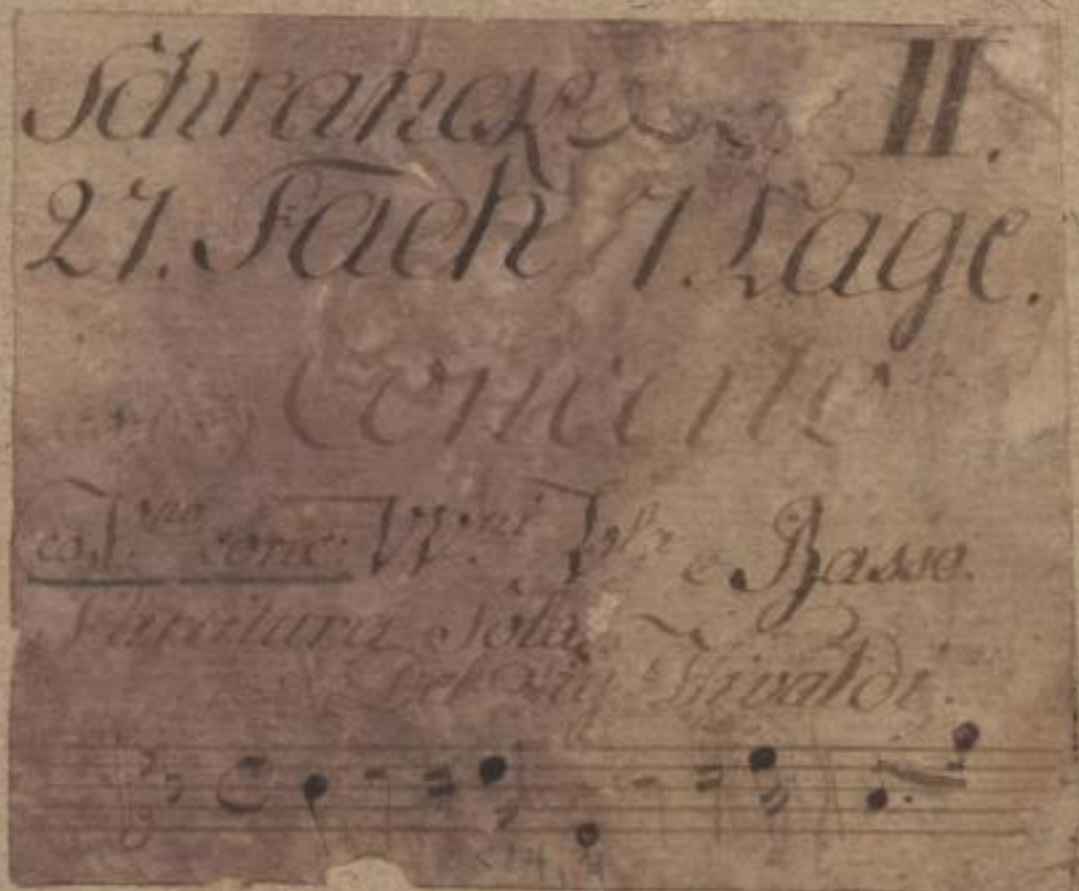 Schranck II.
27. Fach 7. Lage.
Concerto
co V.no conc: VV.ni Vla e Basso.
Partitura Sola.
Del Sig Vivaldi.